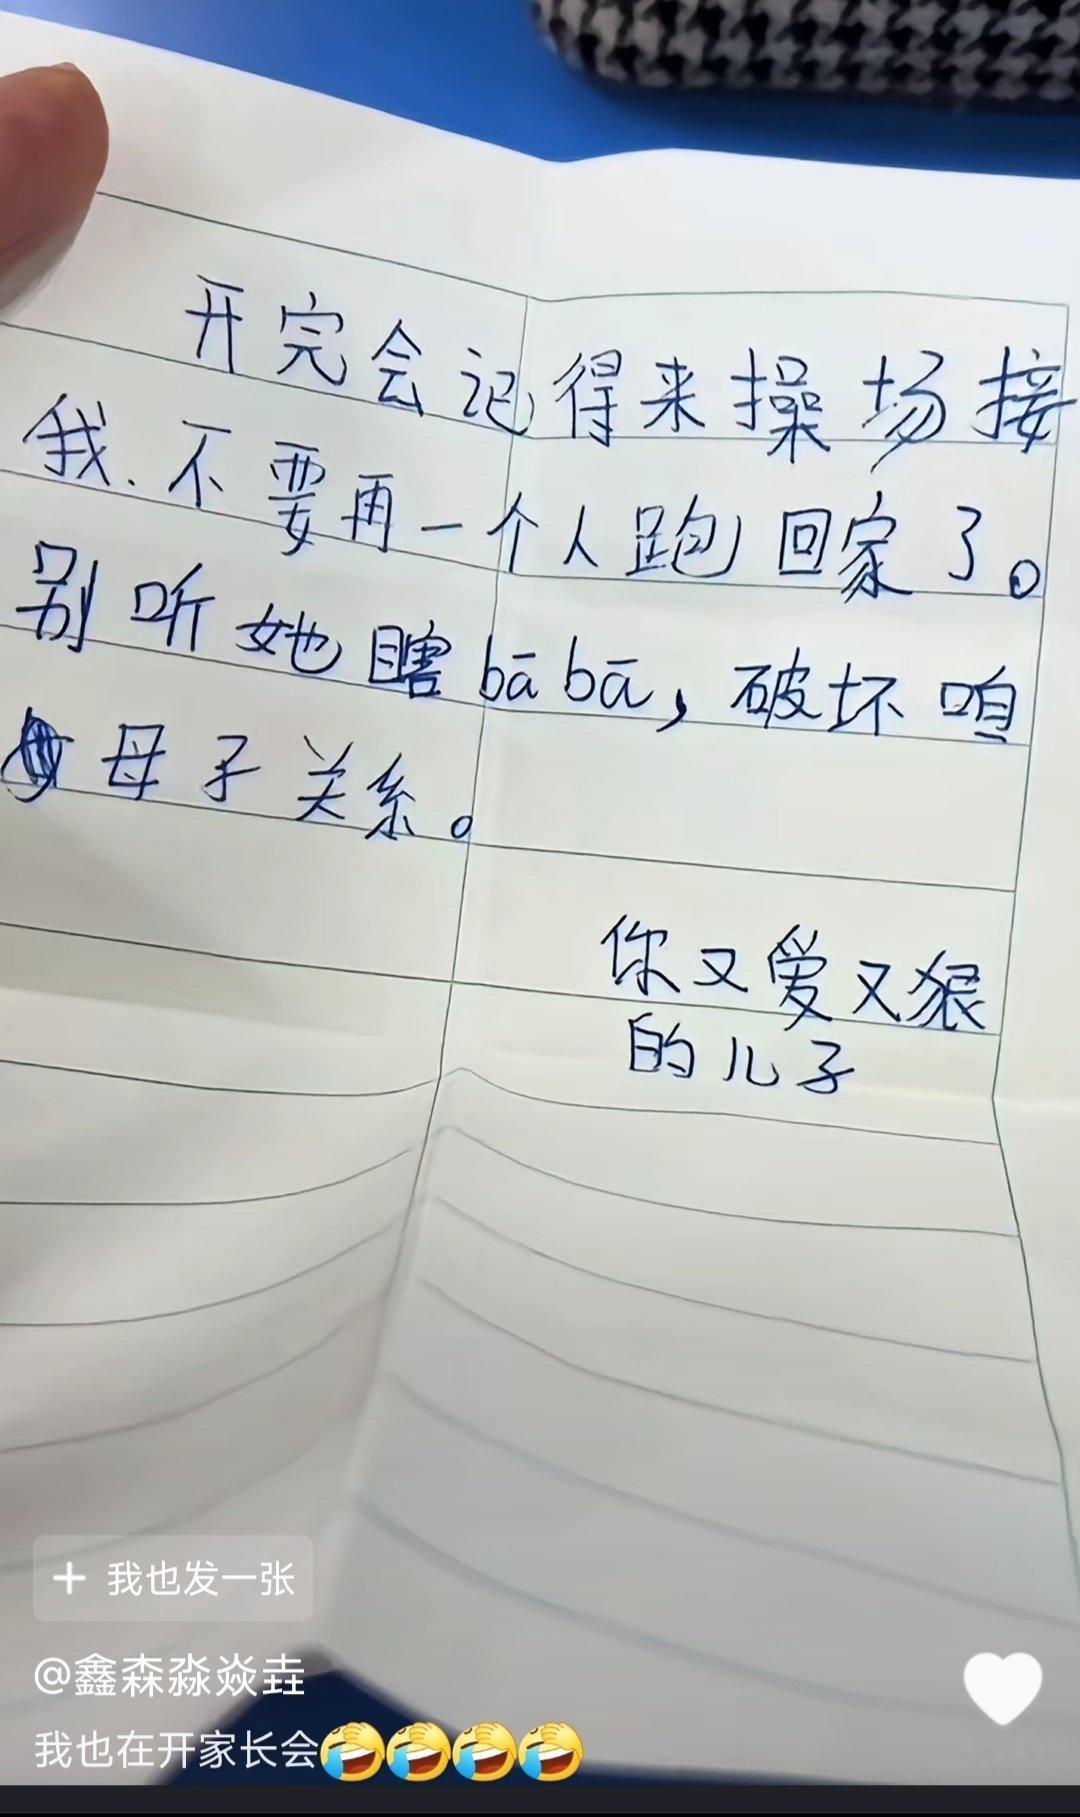 开完会记得来操场接
我.不要再一个人跑回家了。
别听她瞎bā bā,破坏咱
母子关系。
你又爱又狠
的儿子
+ 我也发一张
@鑫森淼焱垚
我也在开家长会🤣🤣🤣🤣